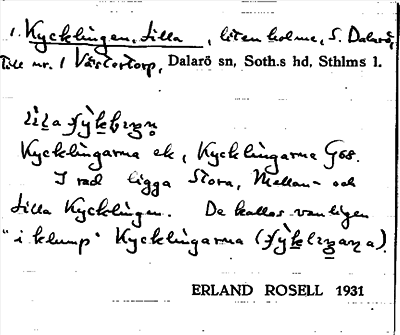 1. Kycklingen, Lilla, liten holme, S. Dalarö,
till nr. 1 Västertorp, Dalarö sn, Soth.s hd, Sthlms l.
Kycklingarna ek, Kycklingarna Gök.
I rad ligga Stora, Mellan- och
Lilla Kycklingen. De kallas vanligen
"i klump" Kycklingarna
ERLAND ROSELL 1931